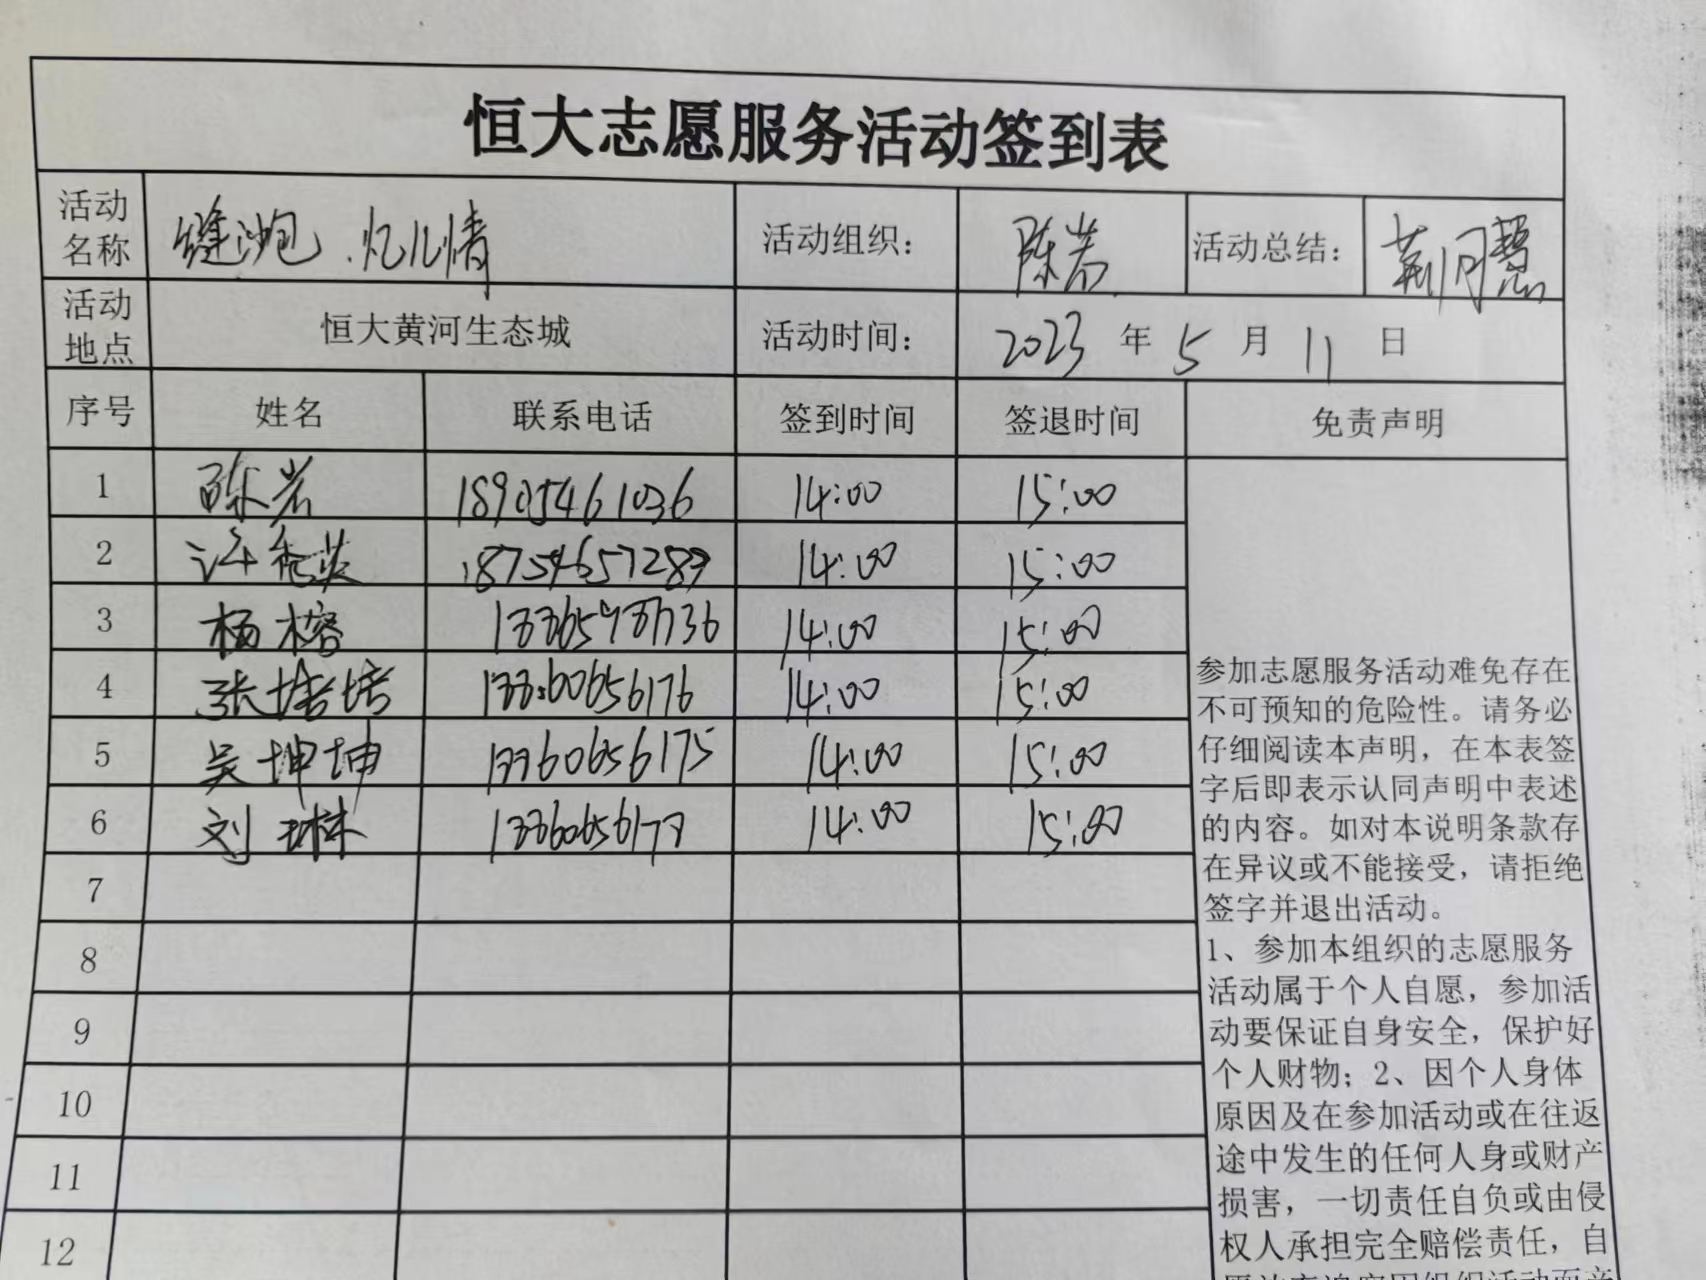 恒大志愿服务活动签到表
活动名称 缝沙包.忆儿情 活动组织： 陈岩 活动总结： 荆月慧
活动地点 恒大黄河生态城 活动时间： 2023 年 5 月 11 日
序号 姓名 联系电话 签到时间 签退时间 免责声明
1 陈岩 18905461036 14:00 15:00
2 18754657289 14:00 15:00
3 杨榕 14:00 15:00
4 张培培 13360656176 14:00 15:00
5 吴坤坤 13360656175 14:00 15:00
6 刘琳 13360656177 14:00 15:00
7
8
9
10
11
12
参加志愿服务活动难免存在
不可预知的危险性。请务必
仔细阅读本声明，在本表签
字后即表示认同声明中表述
的内容。如对本说明条款存
在异议或不能接受，请拒绝
签字并退出活动。
1、参加本组织的志愿服务
活动属于个人自愿，参加活
动要保证自身安全，保护好
个人财物；2、因个人身体
原因及在参加活动或在往返
途中发生的任何人身或财产
损害，一切责任自负或由侵
权人承担完全赔偿责任，自